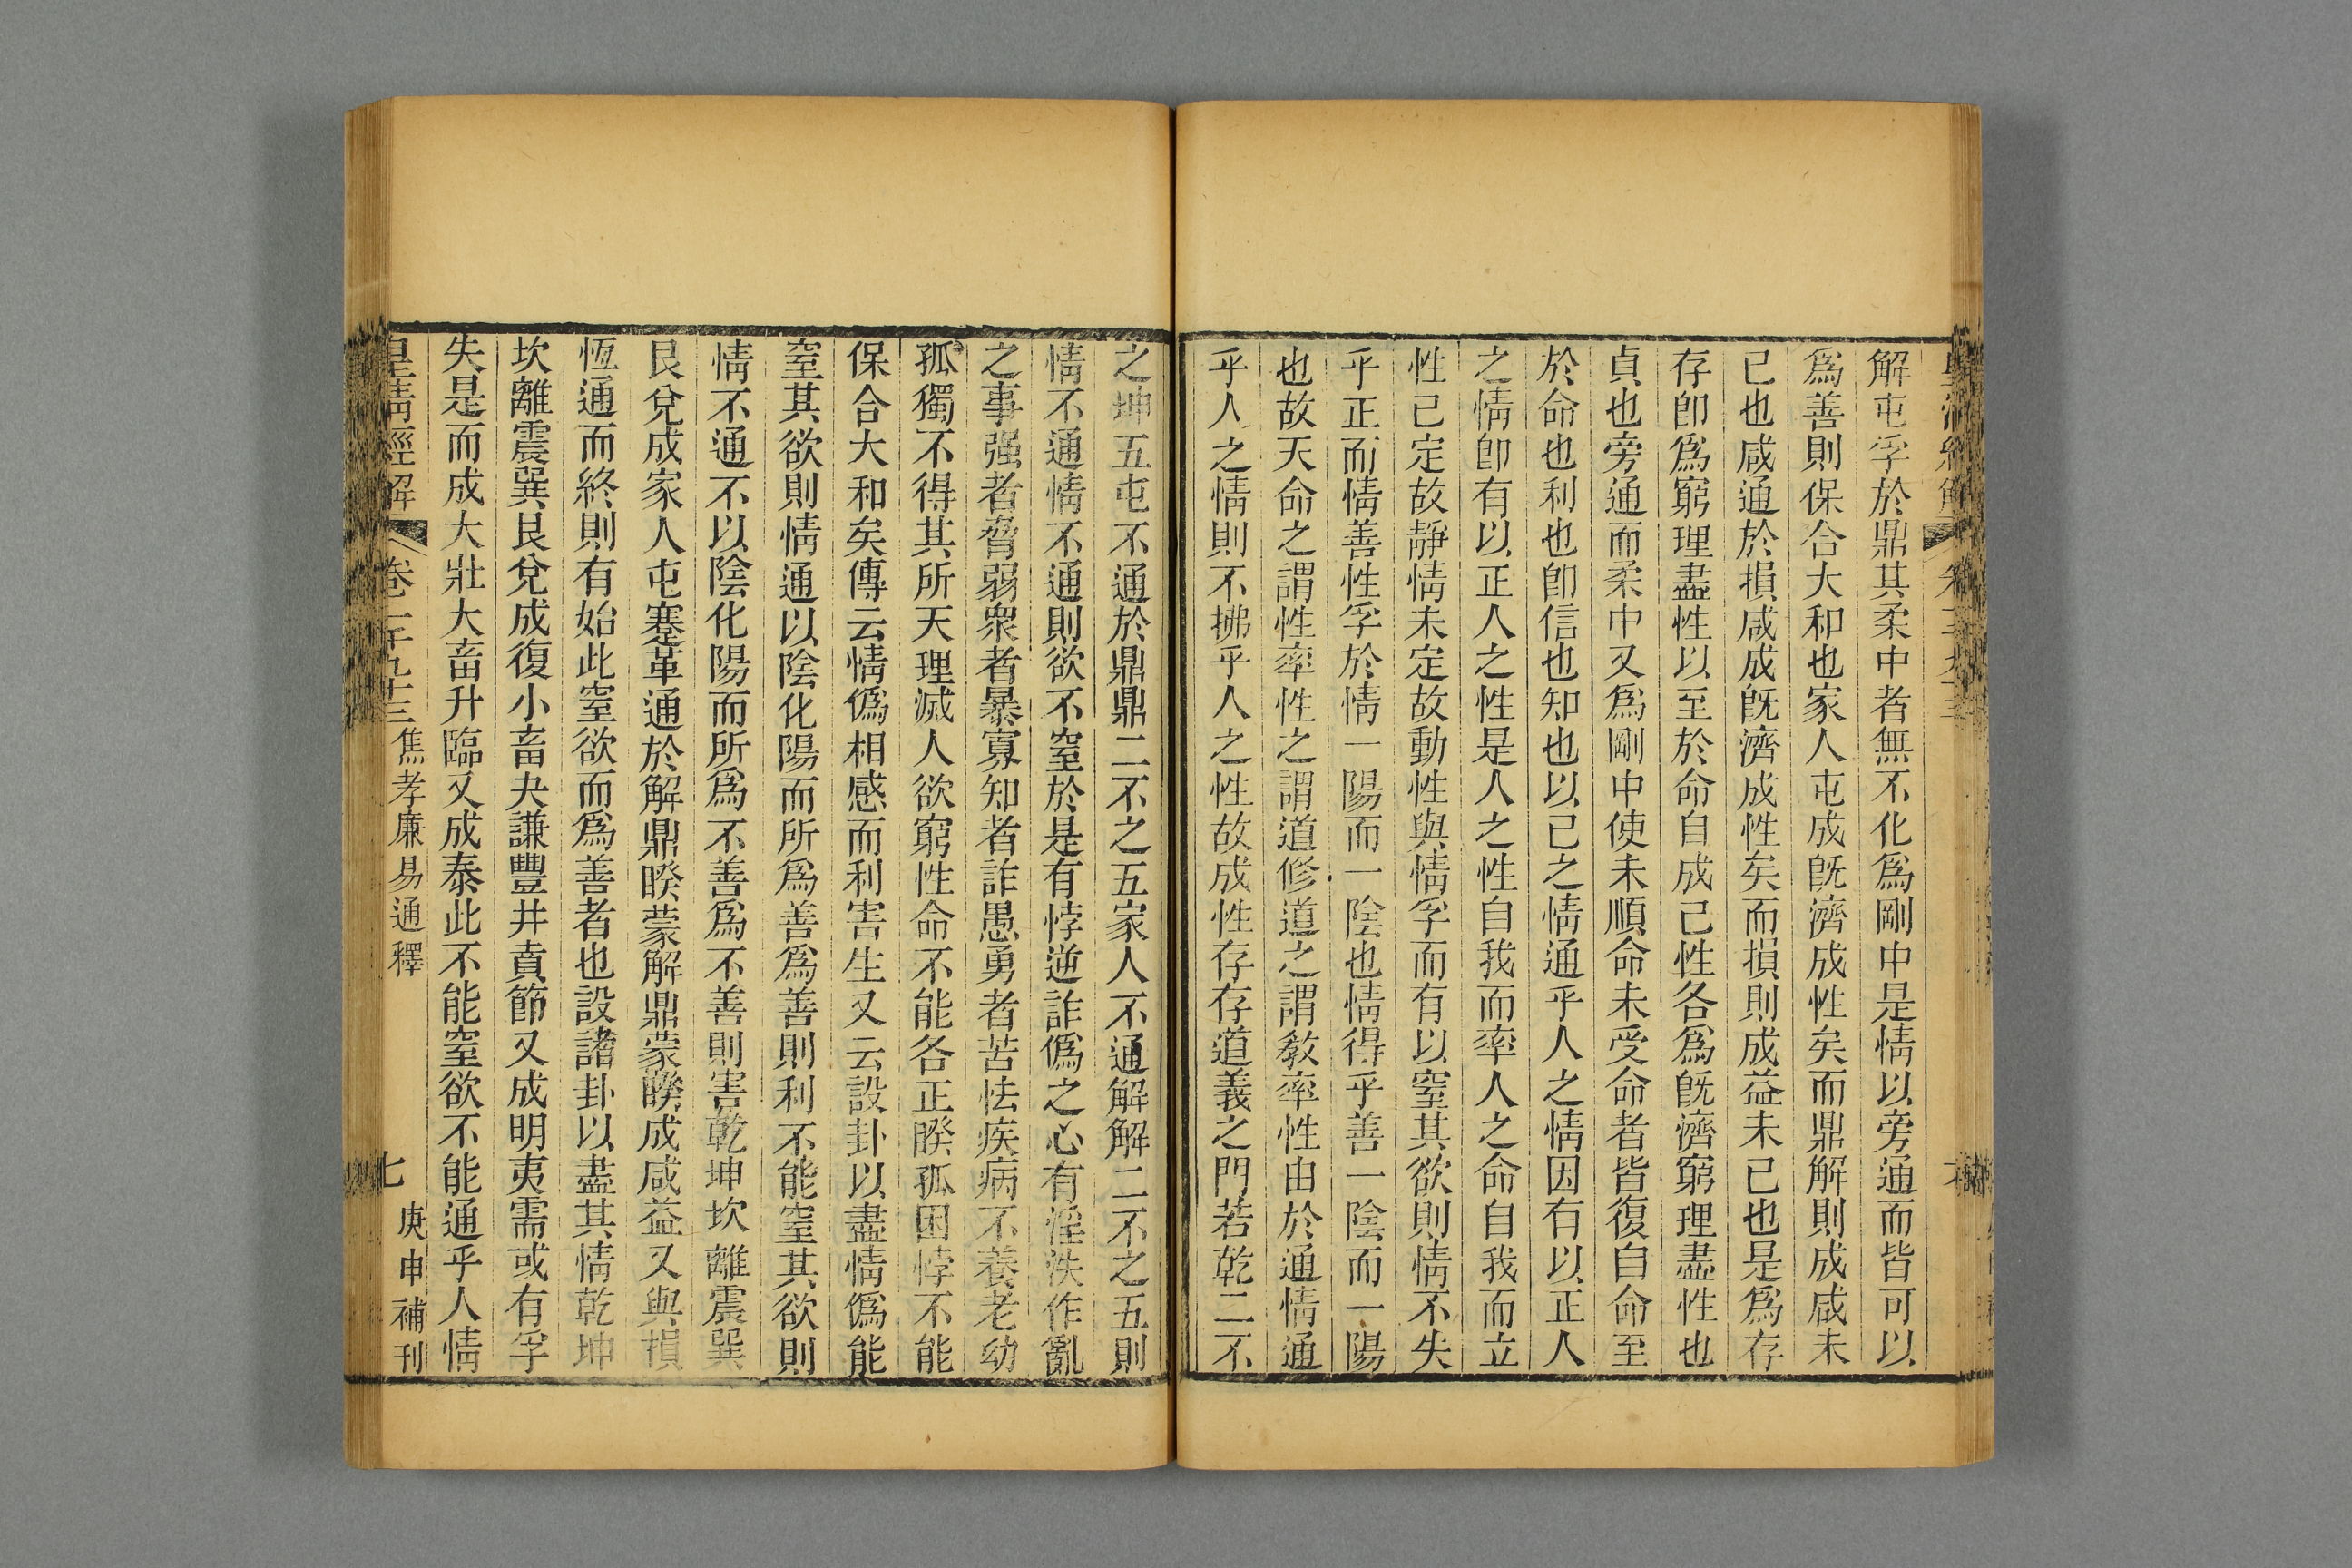 解屯孚於鼎其柔中者無不化爲剛中是情以旁通而皆可以
爲善則保合大和也家人屯成旣濟成性矣而鼎解則成咸未
已也咸通於損咸成旣濟成性矣而損則成益未已也是爲存
存卽爲窮理盡性以至於命自成己性各爲旣濟窮理盡性也
貞也旁通而柔中又爲剛中使未順命未受命者皆復自命至
於命也利也卽信也知也以己之情通乎人之情因有以正人
之情卽有以正人之性是人之性自我而率人之命自我而立
性已定故靜情未定故動性與情孚而有以窒其欲則情不失
乎正而情善性孚於情一陽而一陰也情得乎善一陰而一陽
也故天命之謂性率性之謂道修道之謂敎率性由於通情通
乎人之情則不拂乎人之性故成性存存道義之門若乾二不
之坤五屯不通於鼎鼎二不之五家人不通解解二不之五則
情不通情不通則欲不窒於是有悖逆詐僞之心有淫泆作亂
之事强者脅弱衆者暴寡知者詐愚勇者苦怯疾病不養老幼
孤獨不得其所天理滅人欲窮性命不能各正睽孤困悖不能
保合大和矣傳云情僞相感而利害生又云設卦以盡情僞能
窒其欲則情通以陰化陽而所爲善爲善則利不能窒其欲則
情不通不以陰化陽而所爲不善爲不善則害乾坤坎離震巽
艮兌成家人屯蹇革通於解鼎睽蒙解鼎蒙睽成咸益又與損
恆通而終則有始此窒欲而爲善者也設諸卦以盡其情乾坤
坎離震巽艮兌成復小畜夬謙豐井賁節又成明夷需或有孚
失是而成大壯大畜升臨又成泰此不能窒欲不能通乎人情
皇清經解 卷一千九十三 焦孝廉易通釋 七 庚申補刊